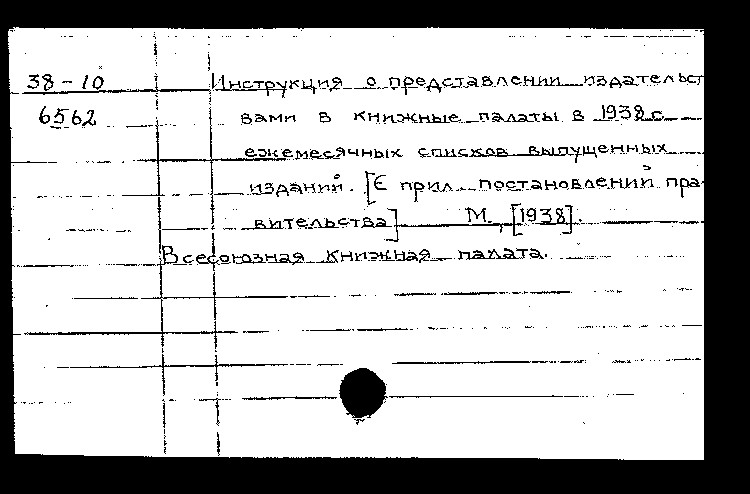 38-10
6562
Инструкция о представлении издательст
вами в книжные палаты в 1938 г.
ежемесячных списков выпущенных
изданий. [С прил. постановлений пра-
вительства] М., [1938].
Всесоюзная книжная палата.